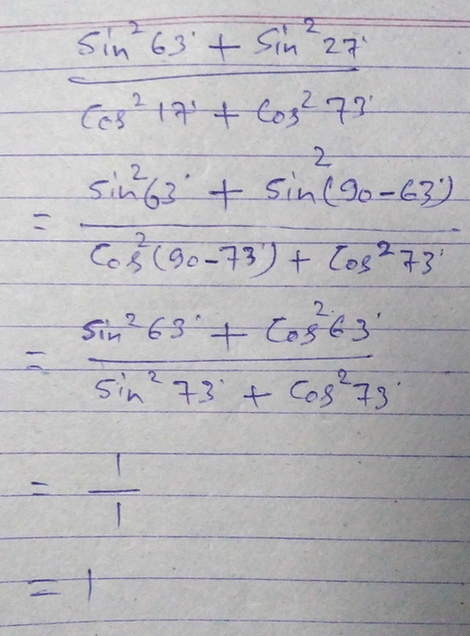 sin² 63° + sin² 27°
cos² 17° + cos² 73°
= sin² 63° + sin² (90-63°)
cos² (90-73°) + cos² 73°
= sin² 63° + cos² 63°
sin² 73° + cos² 73°
= 1
1
= 1